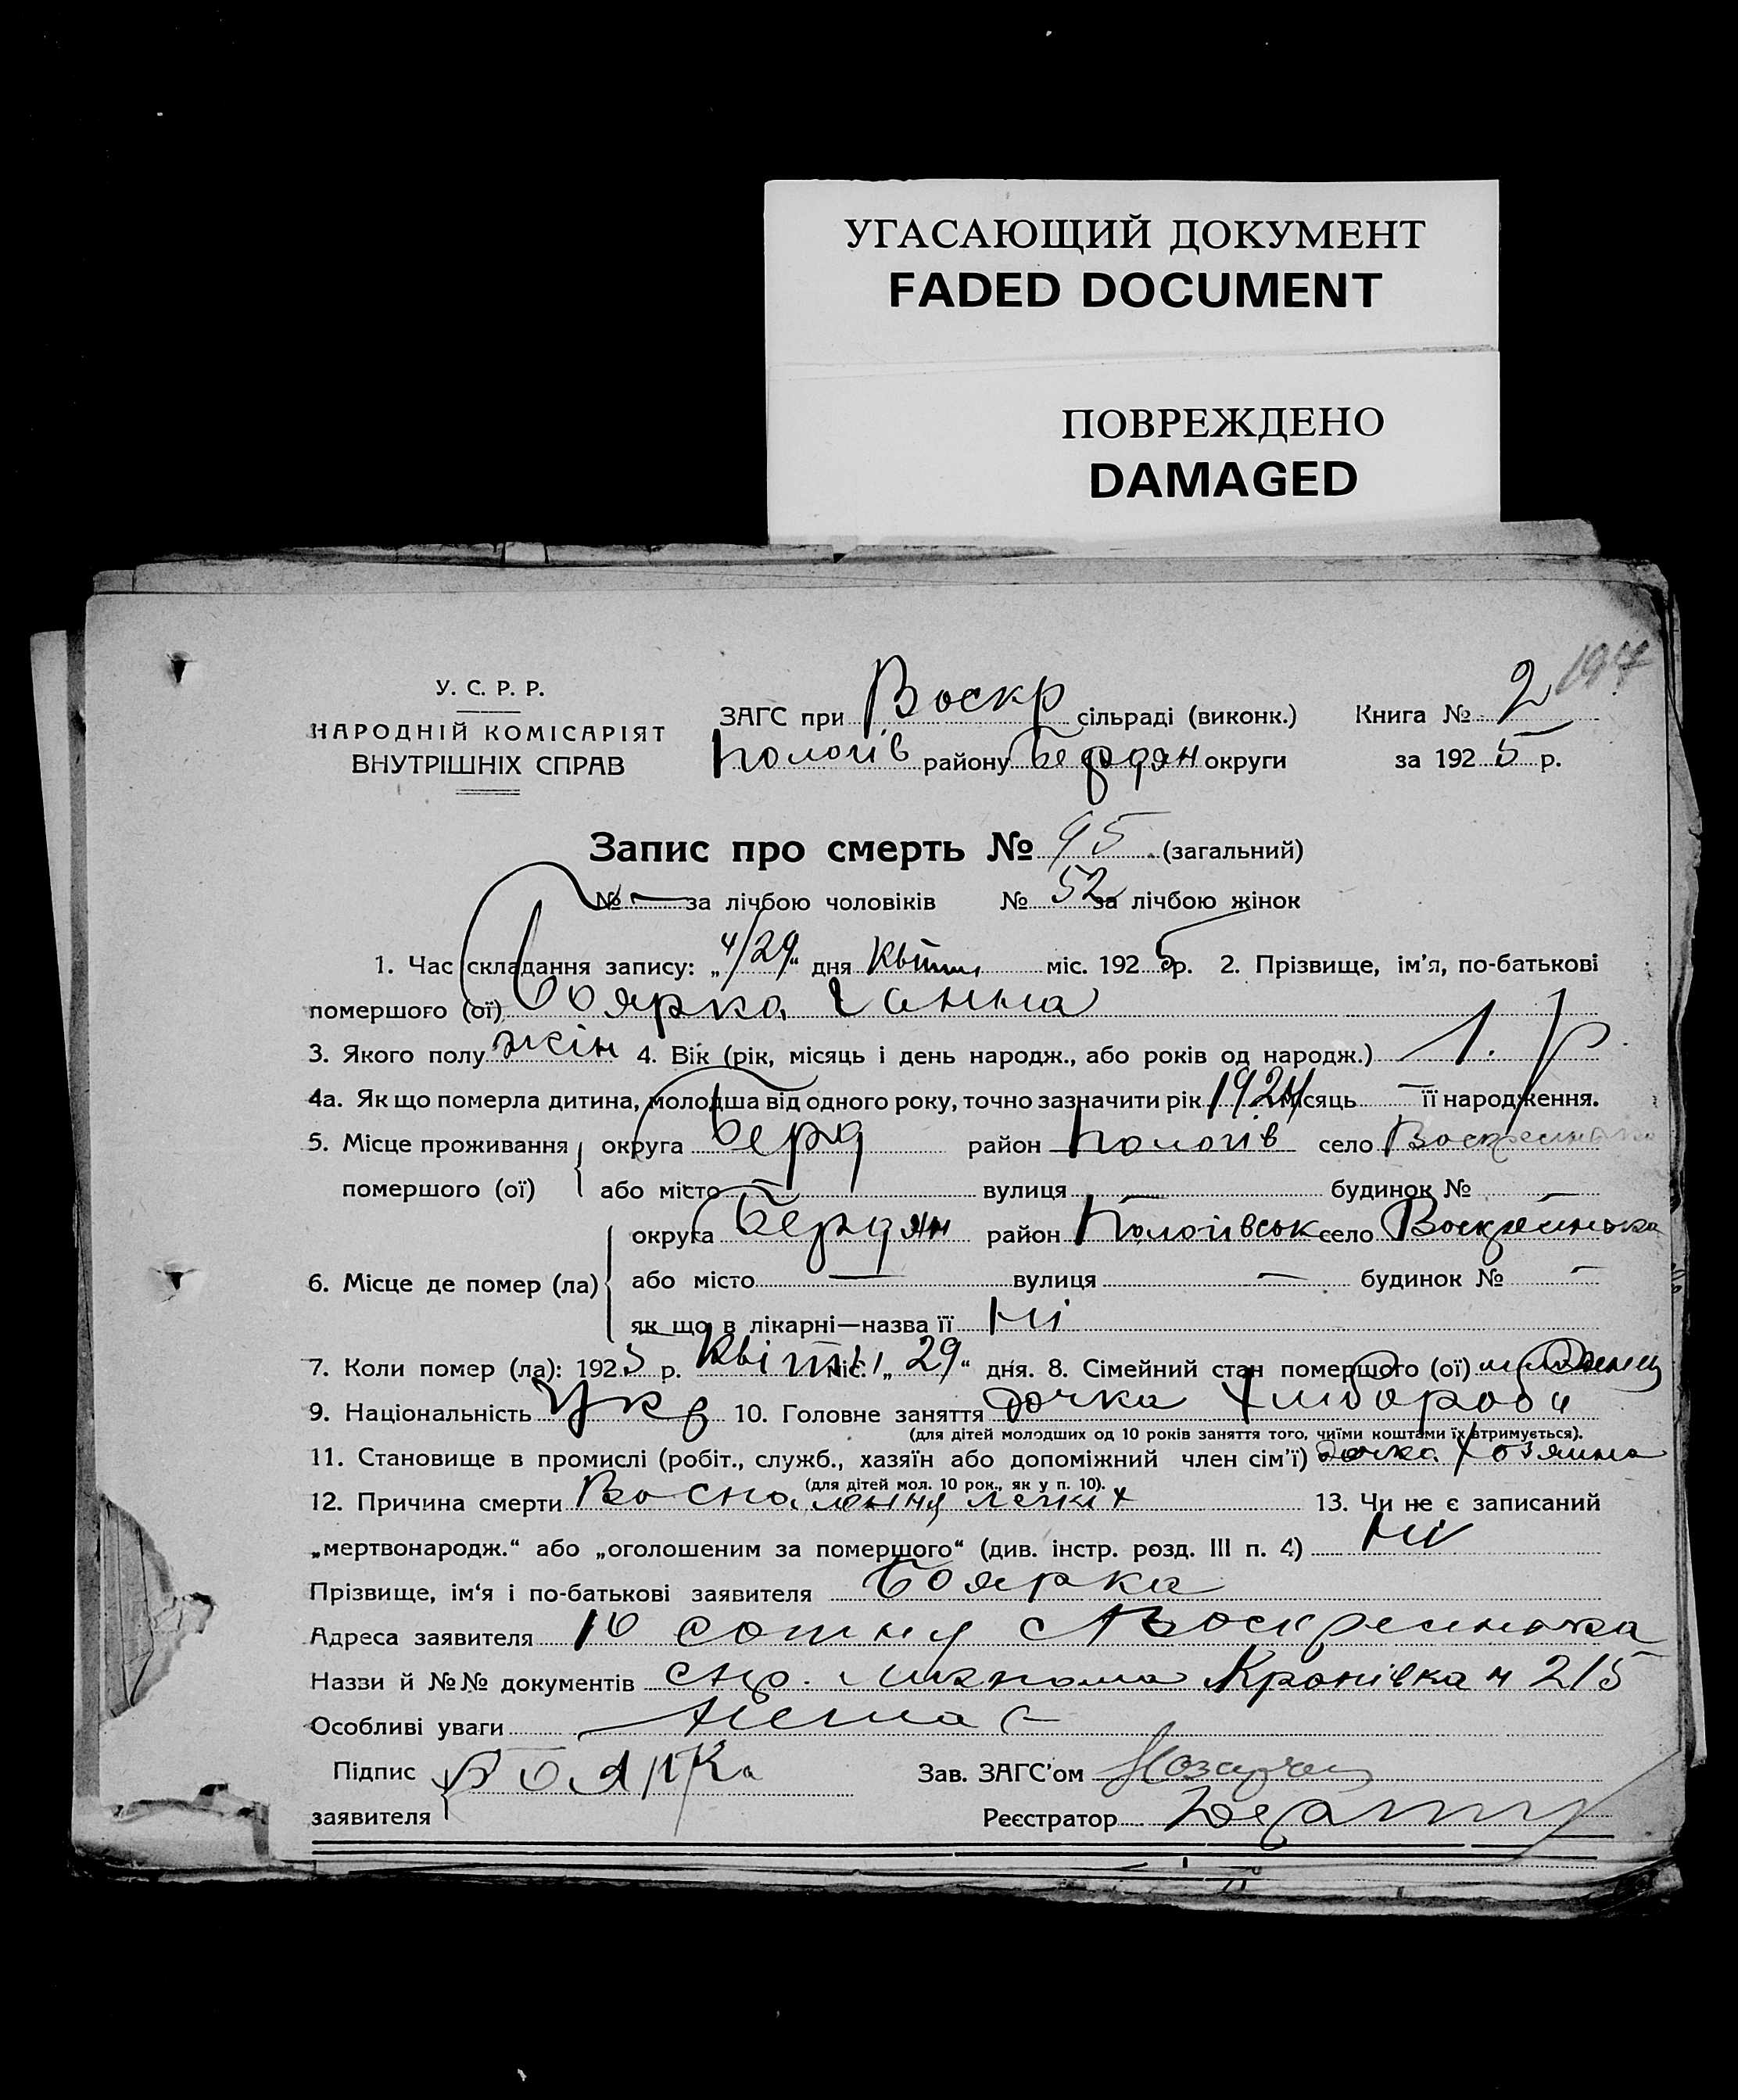 УГАСАЮЩИЙ ДОКУМЕНТ
FADED DOCUMENT
ПОВРЕЖДЕНО
DAMAGED
У. С. Р. Р.
НАРОДНІЙ КОМІСАРІЯТ
ВНУТРІШНІХ СПРАВ
ЗАГС при Воскр сільраді (виконк.) Книга № 2 194
Пологів району Бердян округи за 1925 р.
Запис про смерть № 95 (загальний)
№ — за лічбою чоловіків № 52 за лічбою жінок
1. Час складання запису: „4/29“ дня Квітн міс. 1925 р. 2. Прізвище, ім’я, по-батькові
помершого (ої) Боярка Ганна
3. Якого полу жін 4. Вік (рік, місяць і день народж., або років од народж.) 1. р
4а. Як що померла дитина, молодша від одного року, точно зазначити рік 1924 місяць — її народження.
5. Місце проживання округа Берд район Пологів село Воскресенька
помершого (ої) або місто — вулиця — будинок №
округа Бердян район Пологівськ село Воскресенька
6. Місце де помер (ла) або місто — вулиця — будинок № —
як що в лікарні—назва її Ні
7. Коли помер (ла): 1925 р. Квітн міс. „29“ дня. 8. Сімейний стан помершого (ої)
9. Національність Укр 10. Головне заняття дочка Хлібороба
(для дітей молодших од 10 років заняття того, чиїми коштами їх втримується).
11. Становище в промислі (робіт., служб., хазяїн або допоміжний член сім’ї) дочка Хозяина
(для дітей мол. 10 рок., як у п. 10).
12. Причина смерти Воспалення легких 13. Чи не є записаний
„мертвонародж.“ або „оголошеним за помершого“ (див. інстр. розд. III п. 4) Ні
Прізвище, ім‘я і по-батькові заявителя Боярка
Адреса заявителя 10 сотня с Воскресенька
Назви й №№ документів Кропівка ч 215
Особливі уваги Нема
Підпис Боярка Зав. ЗАГС’ом
заявителя Реєстратор